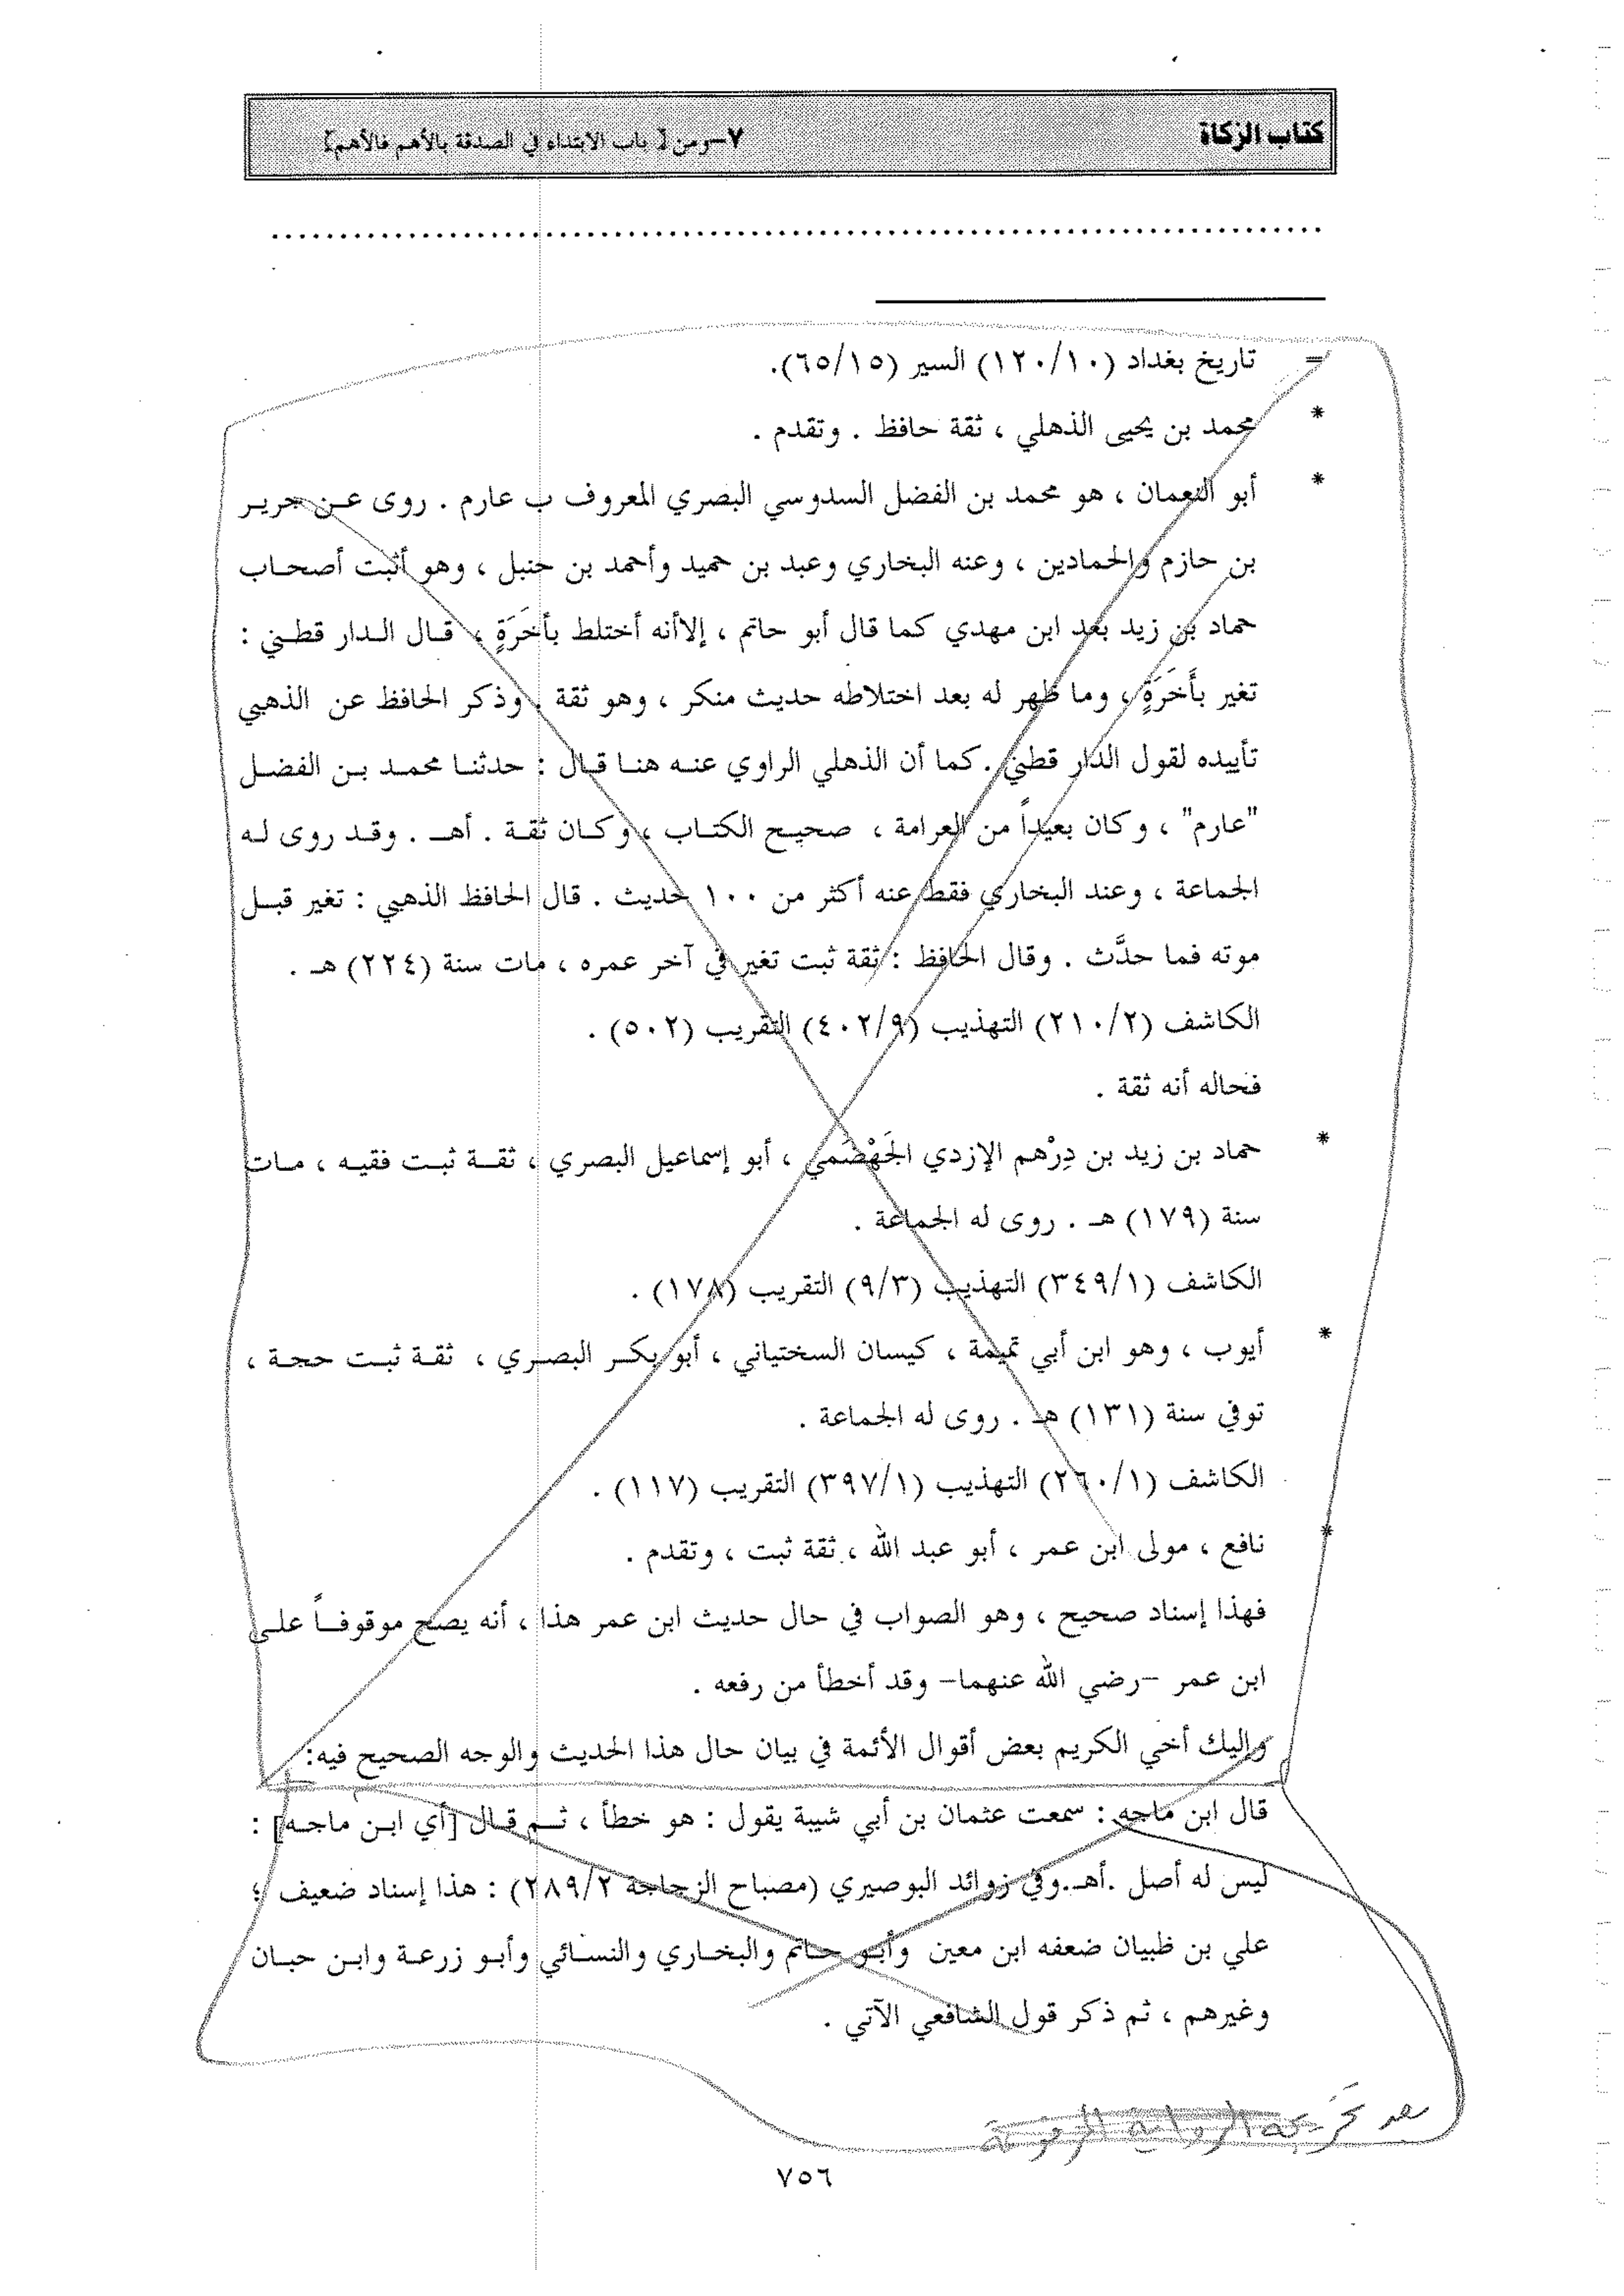 كتاب الزكاة
٧-ومن [ باب الابتداء في الصدقة بالأهم فالأهم]
................................................................
= تاريخ بغداد (١٢٠/١٠) السير (٦٥/١٥).
* محمد بن يحيى الذهلي ، ثقة حافظ . وتقدم .
* أبو النعمان ، هو محمد بن الفضل السدوسي البصري المعروف ب عارم . روى عن جرير
بن حازم والحمادين ، وعنه البخاري وعبد بن حميد وأحمد بن حنبل ، وهو أثبت أصحاب
حماد بن زيد بعد ابن مهدي كما قال أبو حاتم ، إلاأنه أختلط بأَخَرَةٍ ، قال الدار قطني :
تغير بأَخَرَةٍ ، وما ظهر له بعد اختلاطه حديث منكر ، وهو ثقة . وذكر الحافظ عن الذهبي
تأييده لقول الدار قطني . كما أن الذهلي الراوي عنه هنا قال : حدثنا محمد بن الفضل
"عارم" ، وكان بعيداً من العرامة ، صحيح الكتاب ، وكان ثقة . أهـ . وقد روى له
الجماعة ، وعند البخاري فقط عنه أكثر من ١٠٠ حديث . قال الحافظ الذهبي : تغير قبل
موته فما حدَّث . وقال الحافظ : ثقة ثبت تغير في آخر عمره ، مات سنة (٢٢٤) هـ .
الكاشف (٢١٠/٢) التهذيب (٤٠٢/٩) التقريب (٥٠٢) .
فحاله أنه ثقة .
* حماد بن زيد بن دِرْهم الإزدي الجَهْضَمي ، أبو إسماعيل البصري ، ثقة ثبت فقيه ، مات
سنة (١٧٩) هـ . روى له الجماعة .
الكاشف (٣٤٩/١) التهذيب (٩/٣) التقريب (١٧٨) .
* أيوب ، وهو ابن أبي تميمة ، كيسان السختياني ، أبو بكر البصري ، ثقة ثبت حجة ،
توفي سنة (١٣١) هـ . روى له الجماعة .
الكاشف (٢٦٠/١) التهذيب (٣٩٧/١) التقريب (١١٧) .
* نافع ، مولى ابن عمر ، أبو عبد الله ، ثقة ثبت ، وتقدم .
فهذا إسناد صحيح ، وهو الصواب في حال حديث ابن عمر هذا ، أنه يصح موقوفاً على
ابن عمر -رضي الله عنهما- وقد أخطأ من رفعه .
وإليك أخي الكريم بعض أقوال الأئمة في بيان حال هذا الحديث والوجه الصحيح فيه:
قال ابن ماجه : سمعت عثمان بن أبي شيبة يقول : هو خطأ ، ثم قال [أي ابن ماجه] :
ليس له أصل .أهـ..وفي زوائد البوصيري (مصباح الزجاجة ٢٨٩/٢) : هذا إسناد ضعيف ؛
علي بن ظبيان ضعفه ابن معين وأبو حاتم والبخاري والنسائي وأبو زرعة وابن حبان
وغيرهم ، ثم ذكر قول الشافعي الآتي .
الرواية المرفوعة
٧٥٦